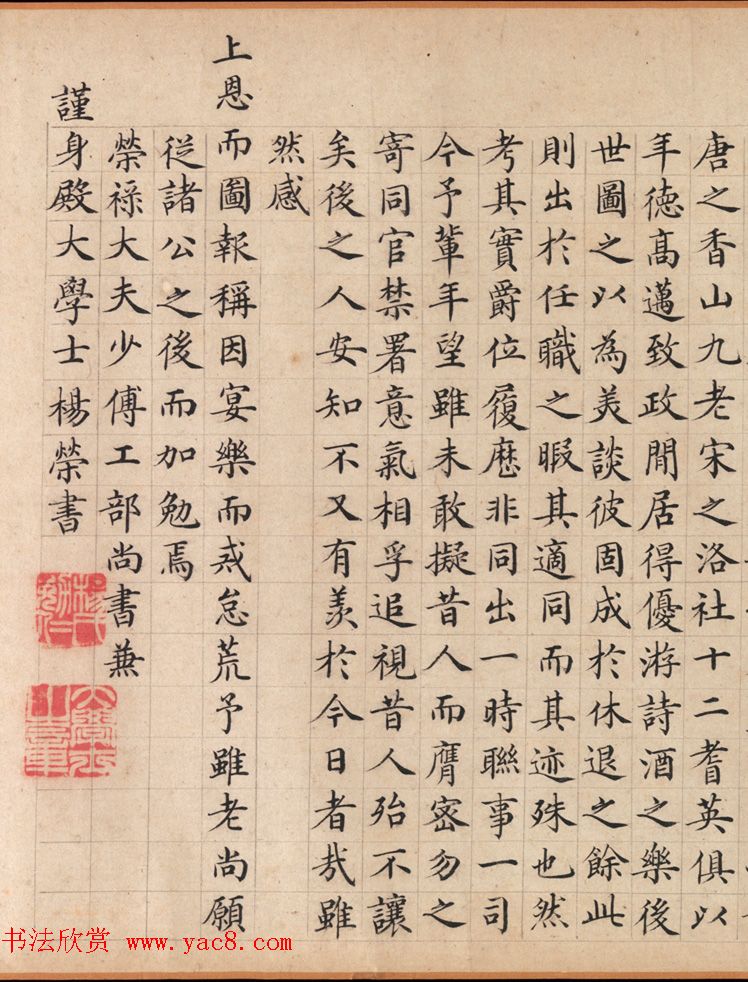 唐之香山九老宋之洛社十二耆英俱以
年德高邁致政閒居得優游詩酒之樂後
世圖之以為美談彼固成於休退之餘此
則出於任職之暇其適同而其迹殊也然
考其實爵位履歷非同出一時聯事一司
今予輩年望雖未敢擬昔人而膺密勿之
寄同官禁署意氣相孚追視昔人殆不讓
矣後之人安知不又有羨於今日者哉雖
然感
上恩而圖報稱因宴樂而戒怠荒予雖老尚願
從諸公之後而加勉焉
榮祿大夫少傅工部尚書兼
謹身殿大學士楊榮書
楊氏勉仁
书法欣赏 www.yac8.com